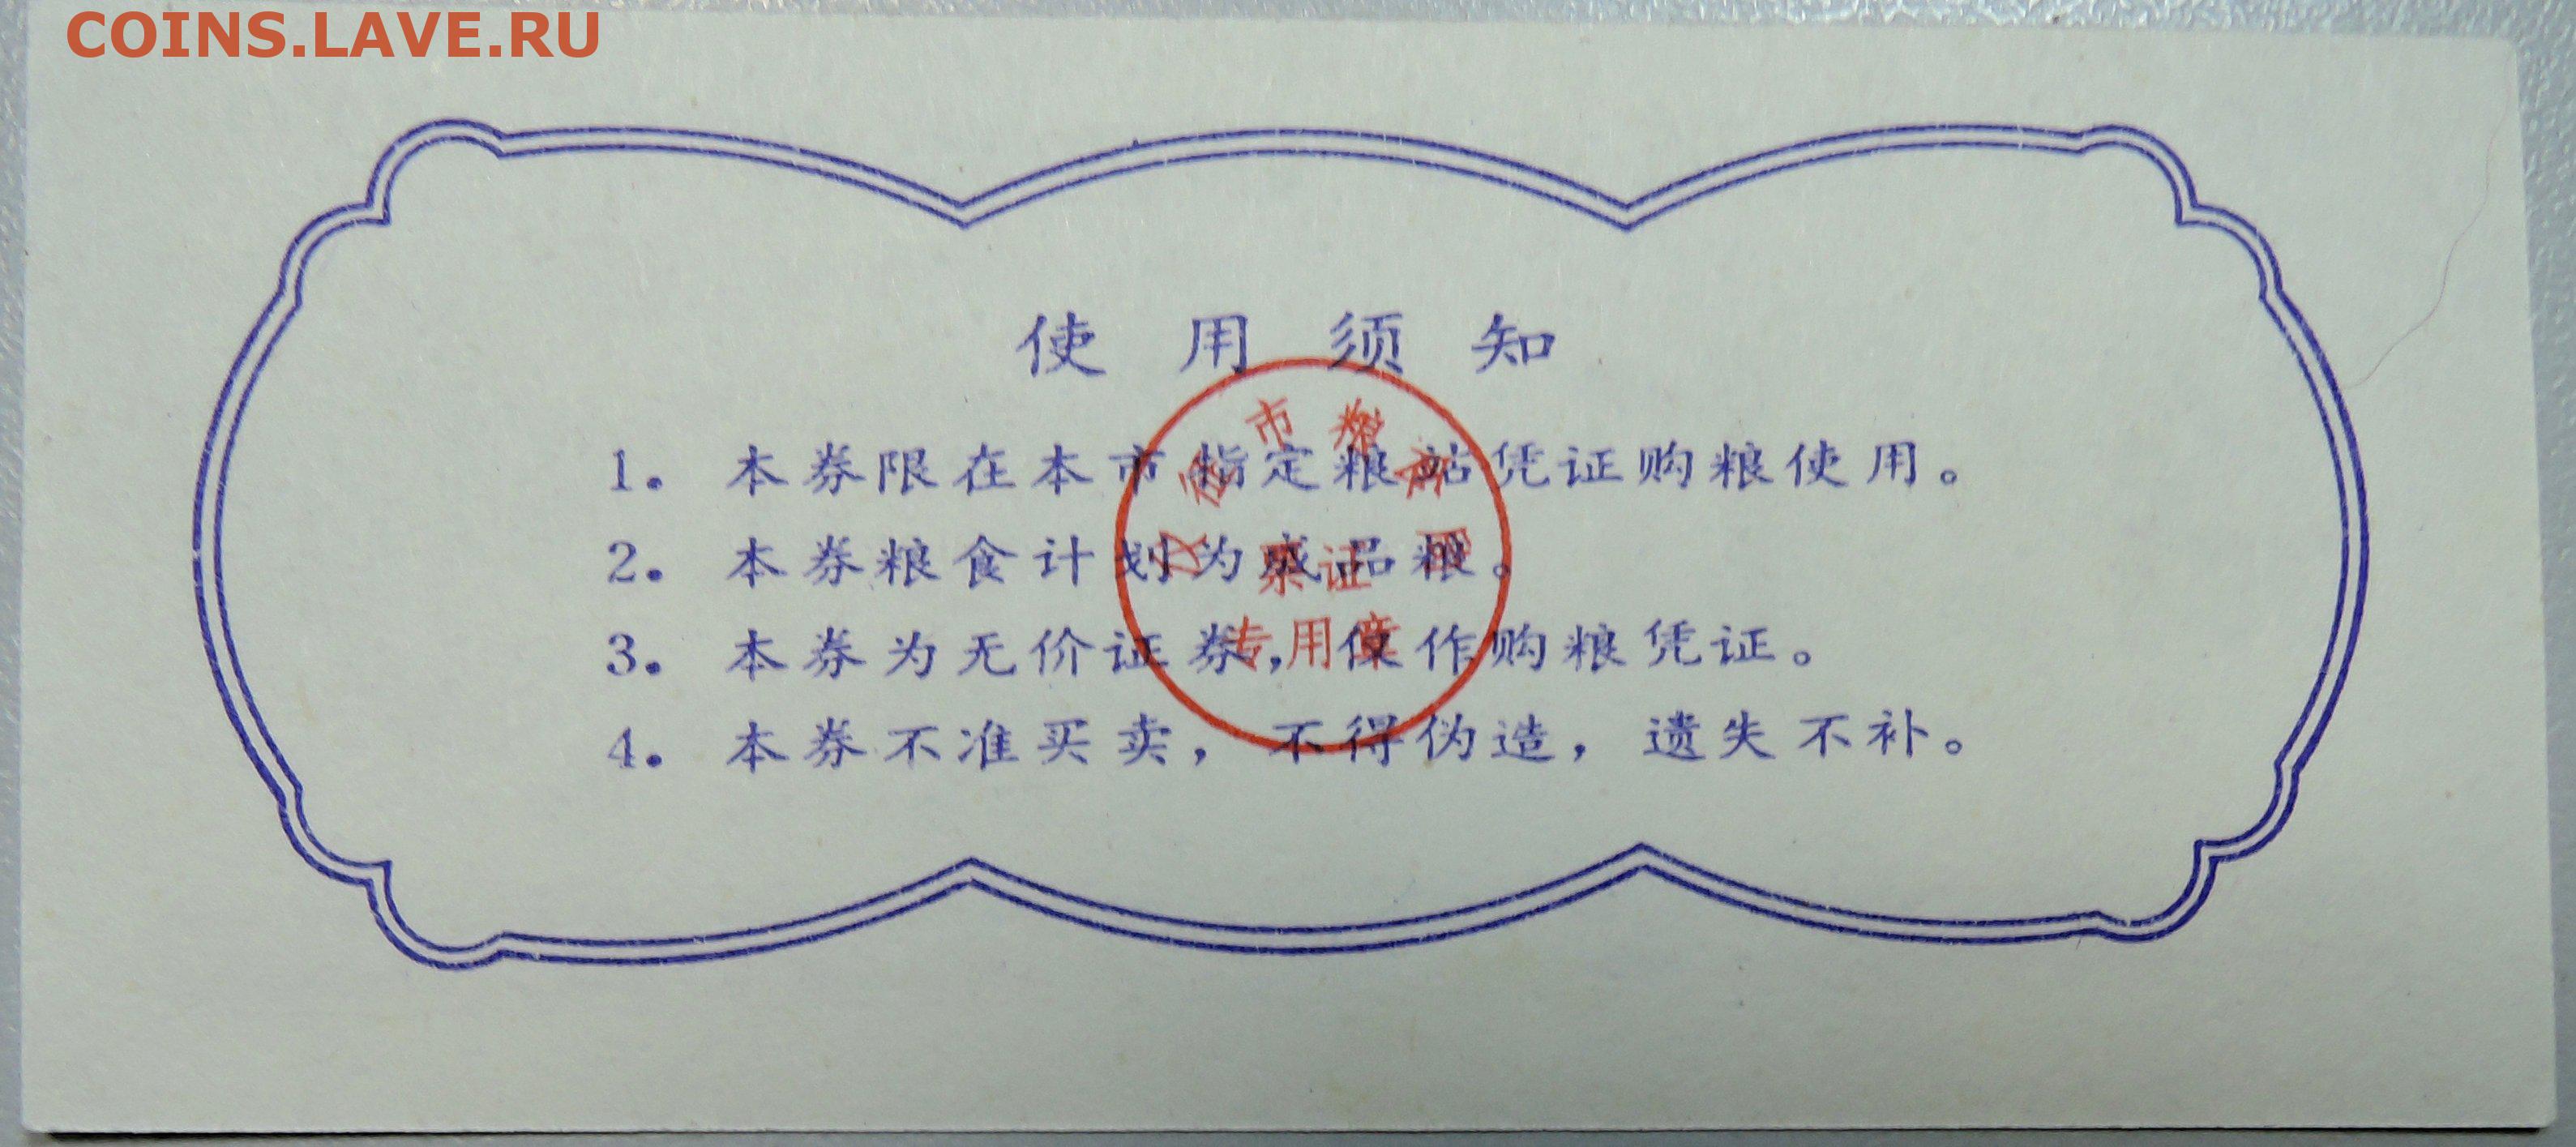 COINS.LAVE.RU
使用须知
1. 本券限在本市指定粮站凭证购粮使用。
2. 本券粮食计划为成品粮。
3. 本券为无价证券，仅作购粮凭证。
4. 本券不准买卖，不得伪造，遗失不补。
市粮
票证
专用章